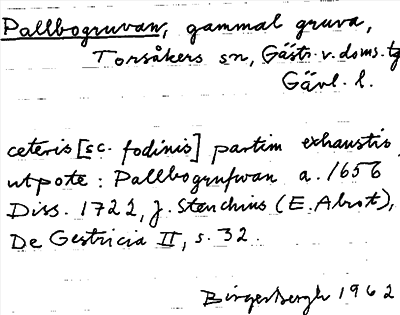 Pallbogruvan, gammal gruva,
Torsåkers sn, Gästr. v. doms. tg
Gävl. l.
ceteris [sc. fodinis] partim exhaustis
utpote: Pallbogrufwan a. 1656
Diss. 1722, J. Stenchius (E. Alrot),
De Gestricia II, s. 32.
Birger Bergh 1962